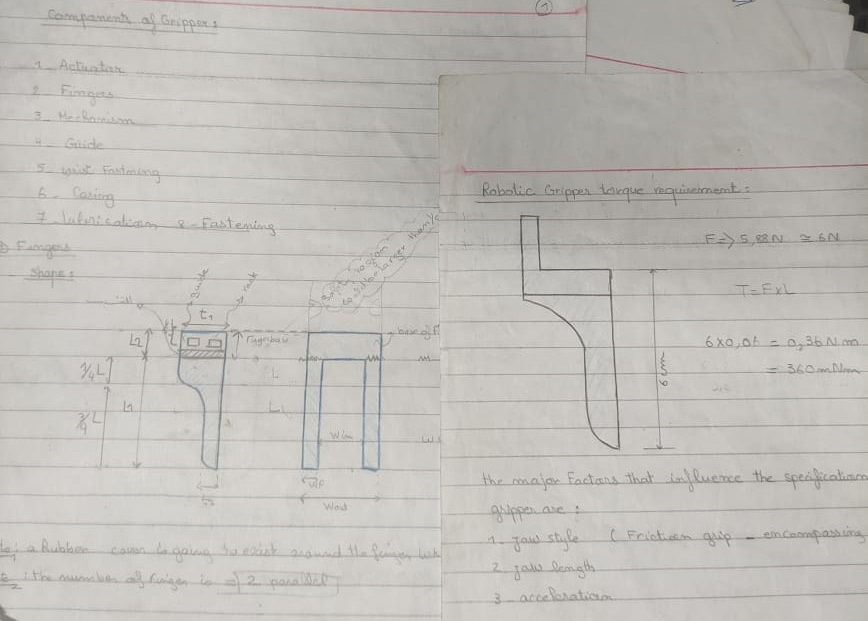 1
Components of Gripper:
1- Actuator
2- Fingers
3- Mechanism
4- Guide
5- wrist Fastning
6- Casing
7- lubrication 8- Fastening
1) Fingers
Shape:
guide
rack
t1
L2
1/4 L
3/4 L
L1
L
L1
Win
WF
Wout
a Rubber cover is going to exist around the finger
: the number of finger is => 2 parallel
Robotic Gripper torque requirement:
F=> 5,88N ≅ 6N
T= F x L
6x0,06 = 0,36 N m
= 360 mNm
the major Factors that influence the specification
gripper are :
1- jaw style ( Friction grip - encompassing
2- jaw length
3- acceleration